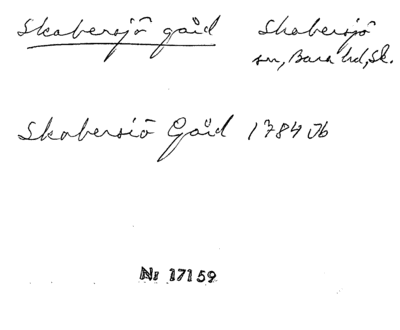 Skabersjö gård
Skabersjö
sn, Bara hd, Sk.
Skabersiö Gård 1784 Jb
Nr 17159